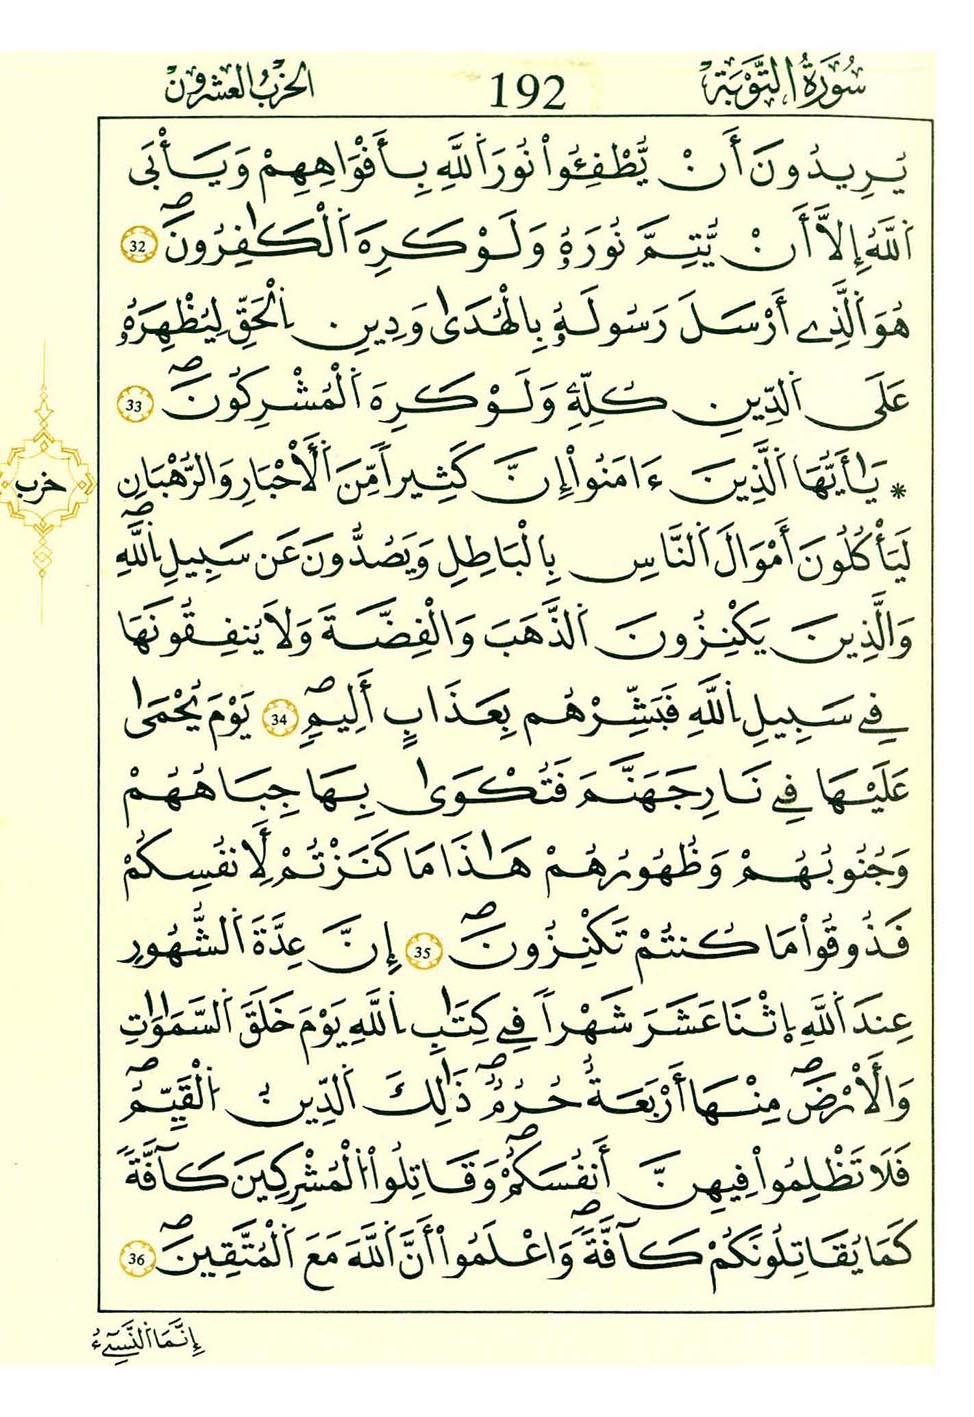 سُورَةُ التَّوْبَةِ 192 الحِزْبُ العِشْرُونَ
يُرِيدُونَ أَنْ يُّطْفِـُٔواْ نُورَ اَ۬للَّهِ بِأَفْوَٰهِهِمْ وَيَأْبَى
اَ۬للَّهُ إِلَّا أَنْ يُّتِمَّ نُورَهُۥ وَلَوْ كَرِهَ اَ۬لْكَٰفِرُونَۖ 32
هُوَ اَ۬لذِےٓ أَرْسَلَ رَسُولَهُۥ بِالْهُدَىٰ وَدِينِ اِ۬لْحَقِّ لِيُظْهِرَهُۥ
عَلَى اَ۬لدِّينِ كُلِّهِۦ وَلَوْ كَرِهَ اَ۬لْمُشْرِكُونَۖ 33
* يَٰأَيُّهَا اَ۬لذِينَ ءَامَنُواْ إِنَّ كَثِيراً مِّنَ اَ۬لْأَحْبَارِ وَالرُّهْبَانِ
لَيَأْكُلُونَ أَمْوَالَ اَ۬لنَّاسِ بِالْبَاطِلِ وَيَصُدُّونَ عَن سَبِيلِ اِ۬للَّهِۖ
وَالذِينَ يَكْنِزُونَ اَ۬لذَّهَبَ وَالْفِضَّةَ وَلَا يُنفِقُونَهَا
فِے سَبِيلِ اِ۬للَّهِ فَبَشِّرْهُم بِعَذَابٍ أَلِيمٍۖ 34 يَوْمَ يُحْمَىٰ
عَلَيْهَا فِے نَارِ جَهَنَّمَ فَتُكْوَىٰ بِهَا جِبَاهُهُمْ
وَجُنُوبُهُمْ وَظُهُورُهُمْ هَٰذَا مَا كَنَزْتُمْ لِأَنفُسِكُمْ
فَذُوقُواْ مَا كُنتُمْ تَكْنِزُونَۖ 35 إِنَّ عِدَّةَ اَ۬لشُّهُورِ
عِندَ اَ۬للَّهِ اِ۪ثْنَا عَشَرَ شَهْراً فِے كِتَٰبِ اِ۬للَّهِ يَوْمَ خَلَقَ اَ۬لسَّمَٰوَٰتِ
وَالْأَرْضَۖ مِنْهَا أَرْبَعَةٌ حُرُمٌۖ ذَٰلِكَ اَ۬لدِّينُ اُ۬لْقَيِّمُۖ
فَلَا تَظْلِمُواْ فِيهِنَّ أَنفُسَكُمْۖ وَقَاتِلُواْ اُ۬لْمُشْرِكِينَ كَآفَّةً
كَمَا يُقَاتِلُونَكُمْ كَآفَّةًۖ وَاعْلَمُواْ أَنَّ اَ۬للَّهَ مَعَ اَ۬لْمُتَّقِينَۖ 36
حزب
إِنَّمَا اَ۬لنَّسِےٓءُ